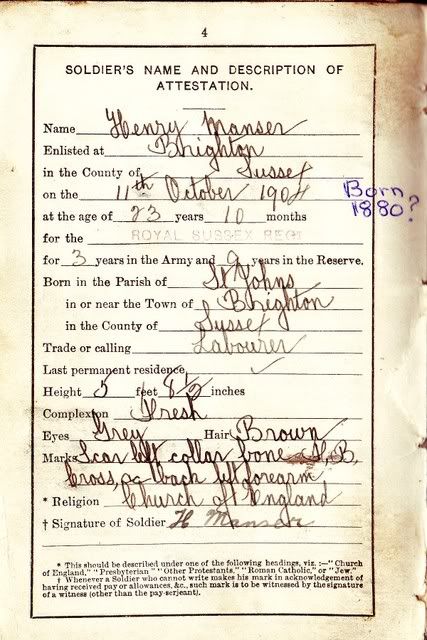 4
SOLDIER'S NAME AND DESCRIPTION OF
ATTESTATION.
Name Henry Manser
Enlisted at Brighton
in the County of Sussex
on the 11th October 1904
Born
1880?
at the age of 23 years 10 months
for the ROYAL SUSSEX REGT
for 3 years in the Army and 9 years in the Reserve.
Born in the Parish of St Johns
in or near the Town of Brighton
in the County of Sussex
Trade or calling Labourer
Last permanent residence
Height 5 feet 8 1/2 inches
Complexion Fresh
Eyes Grey Hair Brown
Marks Scar left collar bone B,
Cross, back left forearm
* Religion Church of England
† Signature of Soldier H Manser
* This should be described under one of the following headings, viz. :—"Church
of England," "Presbyterian" "Other Protestants," "Roman Catholic," or "Jew."
† Whenever a Soldier who cannot write makes his mark in acknowledgement of
having received pay or allowances, &c., such mark is to be witnessed by the signature
of a witness (other than the pay-serjeant).